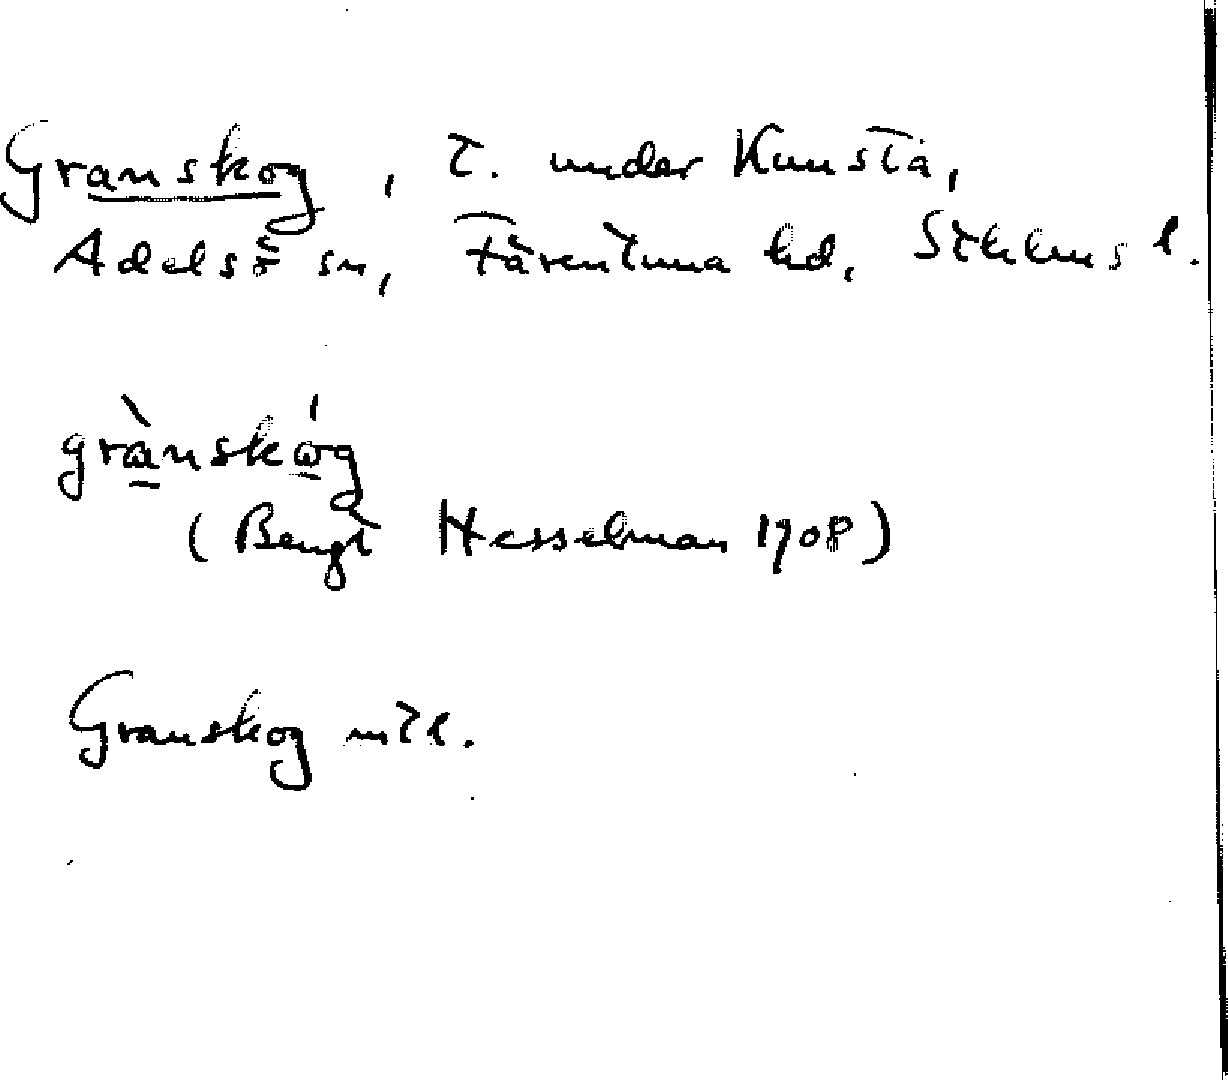 Granskog, t. under Kunsta,
Adelsö sn, Färentuna hd, Sthlms l.
grànskóg
(Bengt Hesselman 1908)
Granskog mtl.